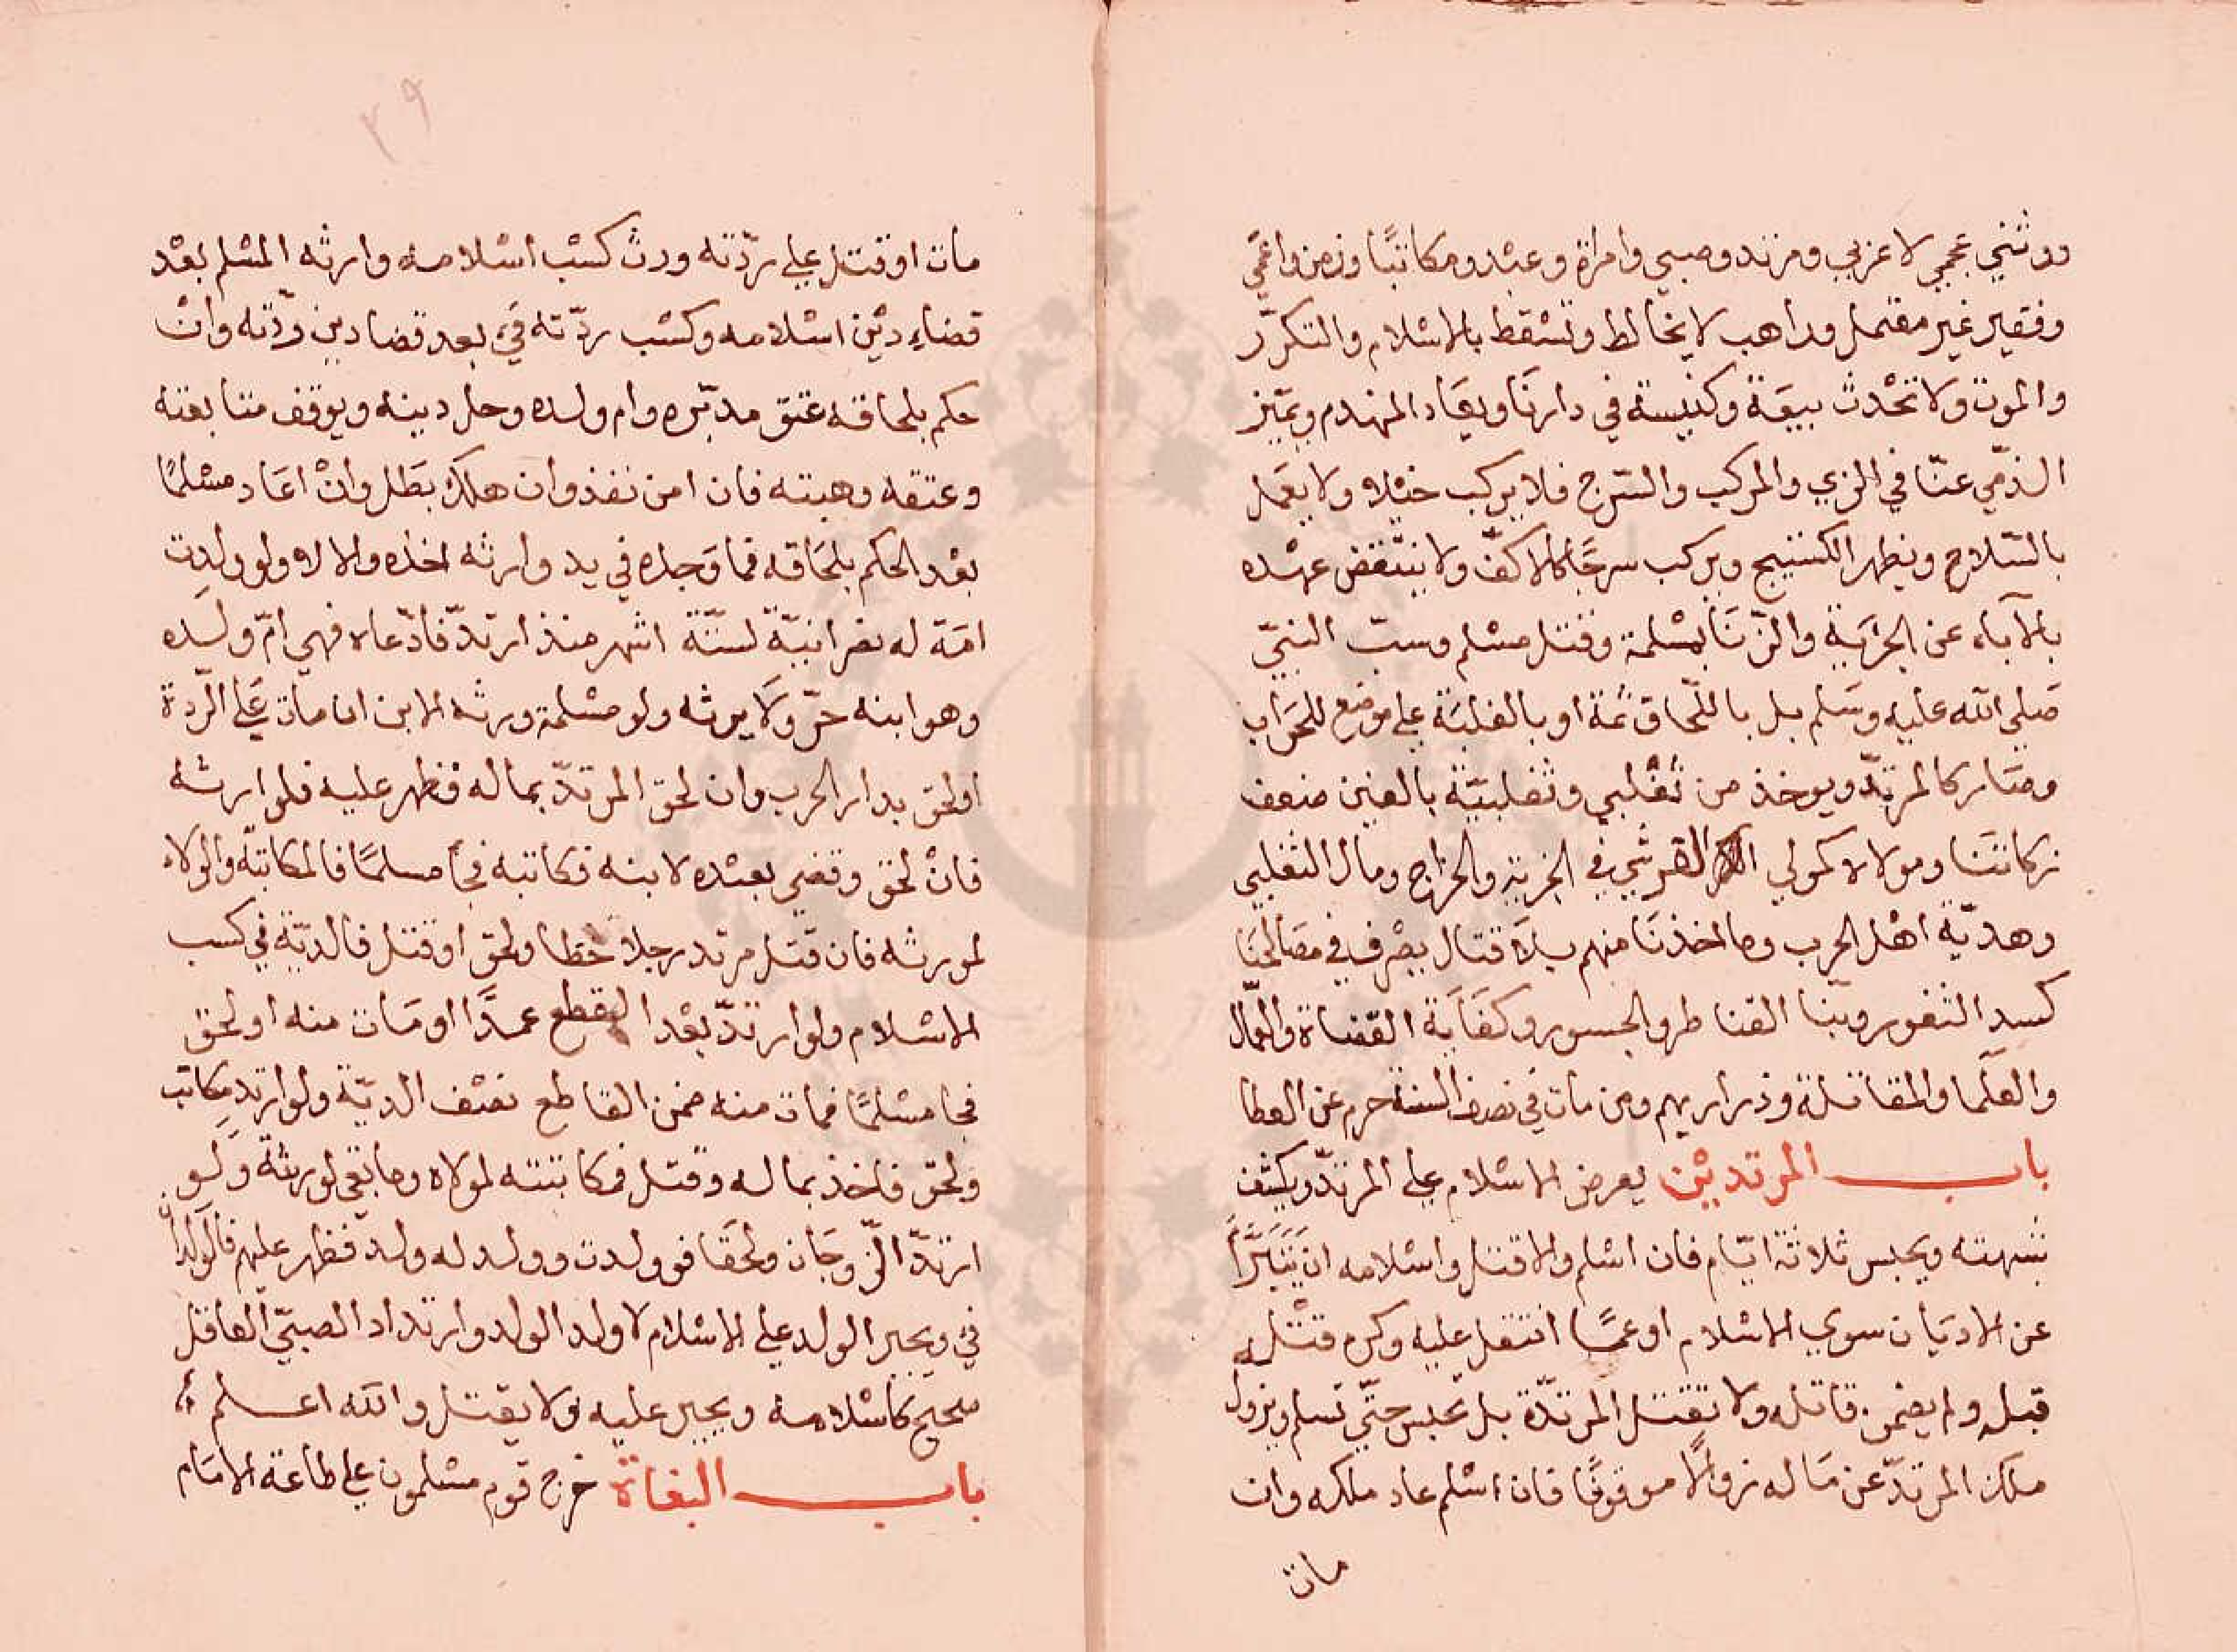 ووثني عجمي لا عربي ومرتد وصبي وامراة وعبد ومكاتبًا وزمن واعمي
وفقير غير معتمل وراهب لا يخالط وتسقط بالاسلام والتكرّر
والموت ولا تحدث بيعة وكنيسة في دارنا ويعاد المنهدم ويميّز
الذمّي عنّا في الزي والمركب والسّرج فلا يركب خيلا ولا يعمل
بالسّلاح ويظهر الكستيج ويركب سرجًا كالاكفّ ولا ينتقض عهده
بالاباء عن الجزية والزنا بمسلمة وقتل مسلم وسبّ النبيّ
صلي الله عليه وسلم بل باللّحاق ثمة او بالغلبة علي موضع للحراب
وصار كالمرتدّ ويوخذ من تغلبي وتغلبيّة بالغين ضعف
زكاتنا ومولاه كمولي القرشي في الجزية والخراج ومال التغلبي
وهديّة اهل الحرب وما اخذنا منهم بلا قتال يصرف في مصالحنا
كسد الثغور وبنا القناطر والجسور وكفاية القضاة والعمال
والعلما والمقاتلة وذراريهم ومن مات في نصف السنة حرم عن العطا
باب المرتدين يعرض الاسلام علي المرتدّ ويكشف
شبهته ويحبس ثلاثة ايّام فان اسلم والا قتل واسلامه ان يتبرّا
عن الاديان سوي الاسلام او عمّا انتقل عليه وكره قتله
قبله ولم يضمن قاتله ولا تقتل المرتدّة بل تحبس حتّي تسلم ويزول
ملك المرتدّ عن ماله زوالًا موقوفًا فان اسلم عاد ملكه وان
مات
٢٩
مات او قتل علي ردّته ورث كسب اسلامه وارثه المسلم بعد
قضاء دين اسلامه وكسب ردّته فيء بعد قضا دين ردّته وان
حكم بلحاقه عتق مدبّره وام ولده وحل دينه ويوقف متابعته
وعتقه وهبته فان امن نفذ وان هلك بطل وان عاد مسلمًا
بعد الحكم بلحاقه فما وجده في يد وارثه اخذه والا لا ولو ولدت
امة له نصرانيّة لستّة اشهر منذ ارتدّ فادّعاه فهي امّ ولده
وهو ابنه حرّ ولا يرثه ولو مسلمة ورثه الابن ان مات علي الرّدة
او لحق بدار الحرب وان لحق المرتدّ بماله فظهر عليه فلوارثه
فان لحق وقضي بعبده لابنه فكاتبه فجا مسلمًا فالمكاتبة والولاء
لمورثه فان قتل مرتد رجلا خطا ولحق او قتل فالديّة في كسب
الاسلام ولو ارتدّ بعد القطع عمدًا او مات منه او لحق
فجا مسلمًا فمات منه ضمن القاطع نصف الديّة ولو ارتد مكاتب
ولحق فاخذ بماله وقتل فمكاتبته لمولاه وما بقي لورثة ولو
ارتدّ الزّوجان ولحقا فولدت وولد له ولد فظهر عليهم فالولدان
في ويجبر الولد علي الاسلام لا ولد الولد وارتداد الصبيّ العاقل
صحيح كاسلامه ويجبر عليه ولا يقتل والله اعلم
باب البغاة خرج قوم مسلمون علي طاعة الامام